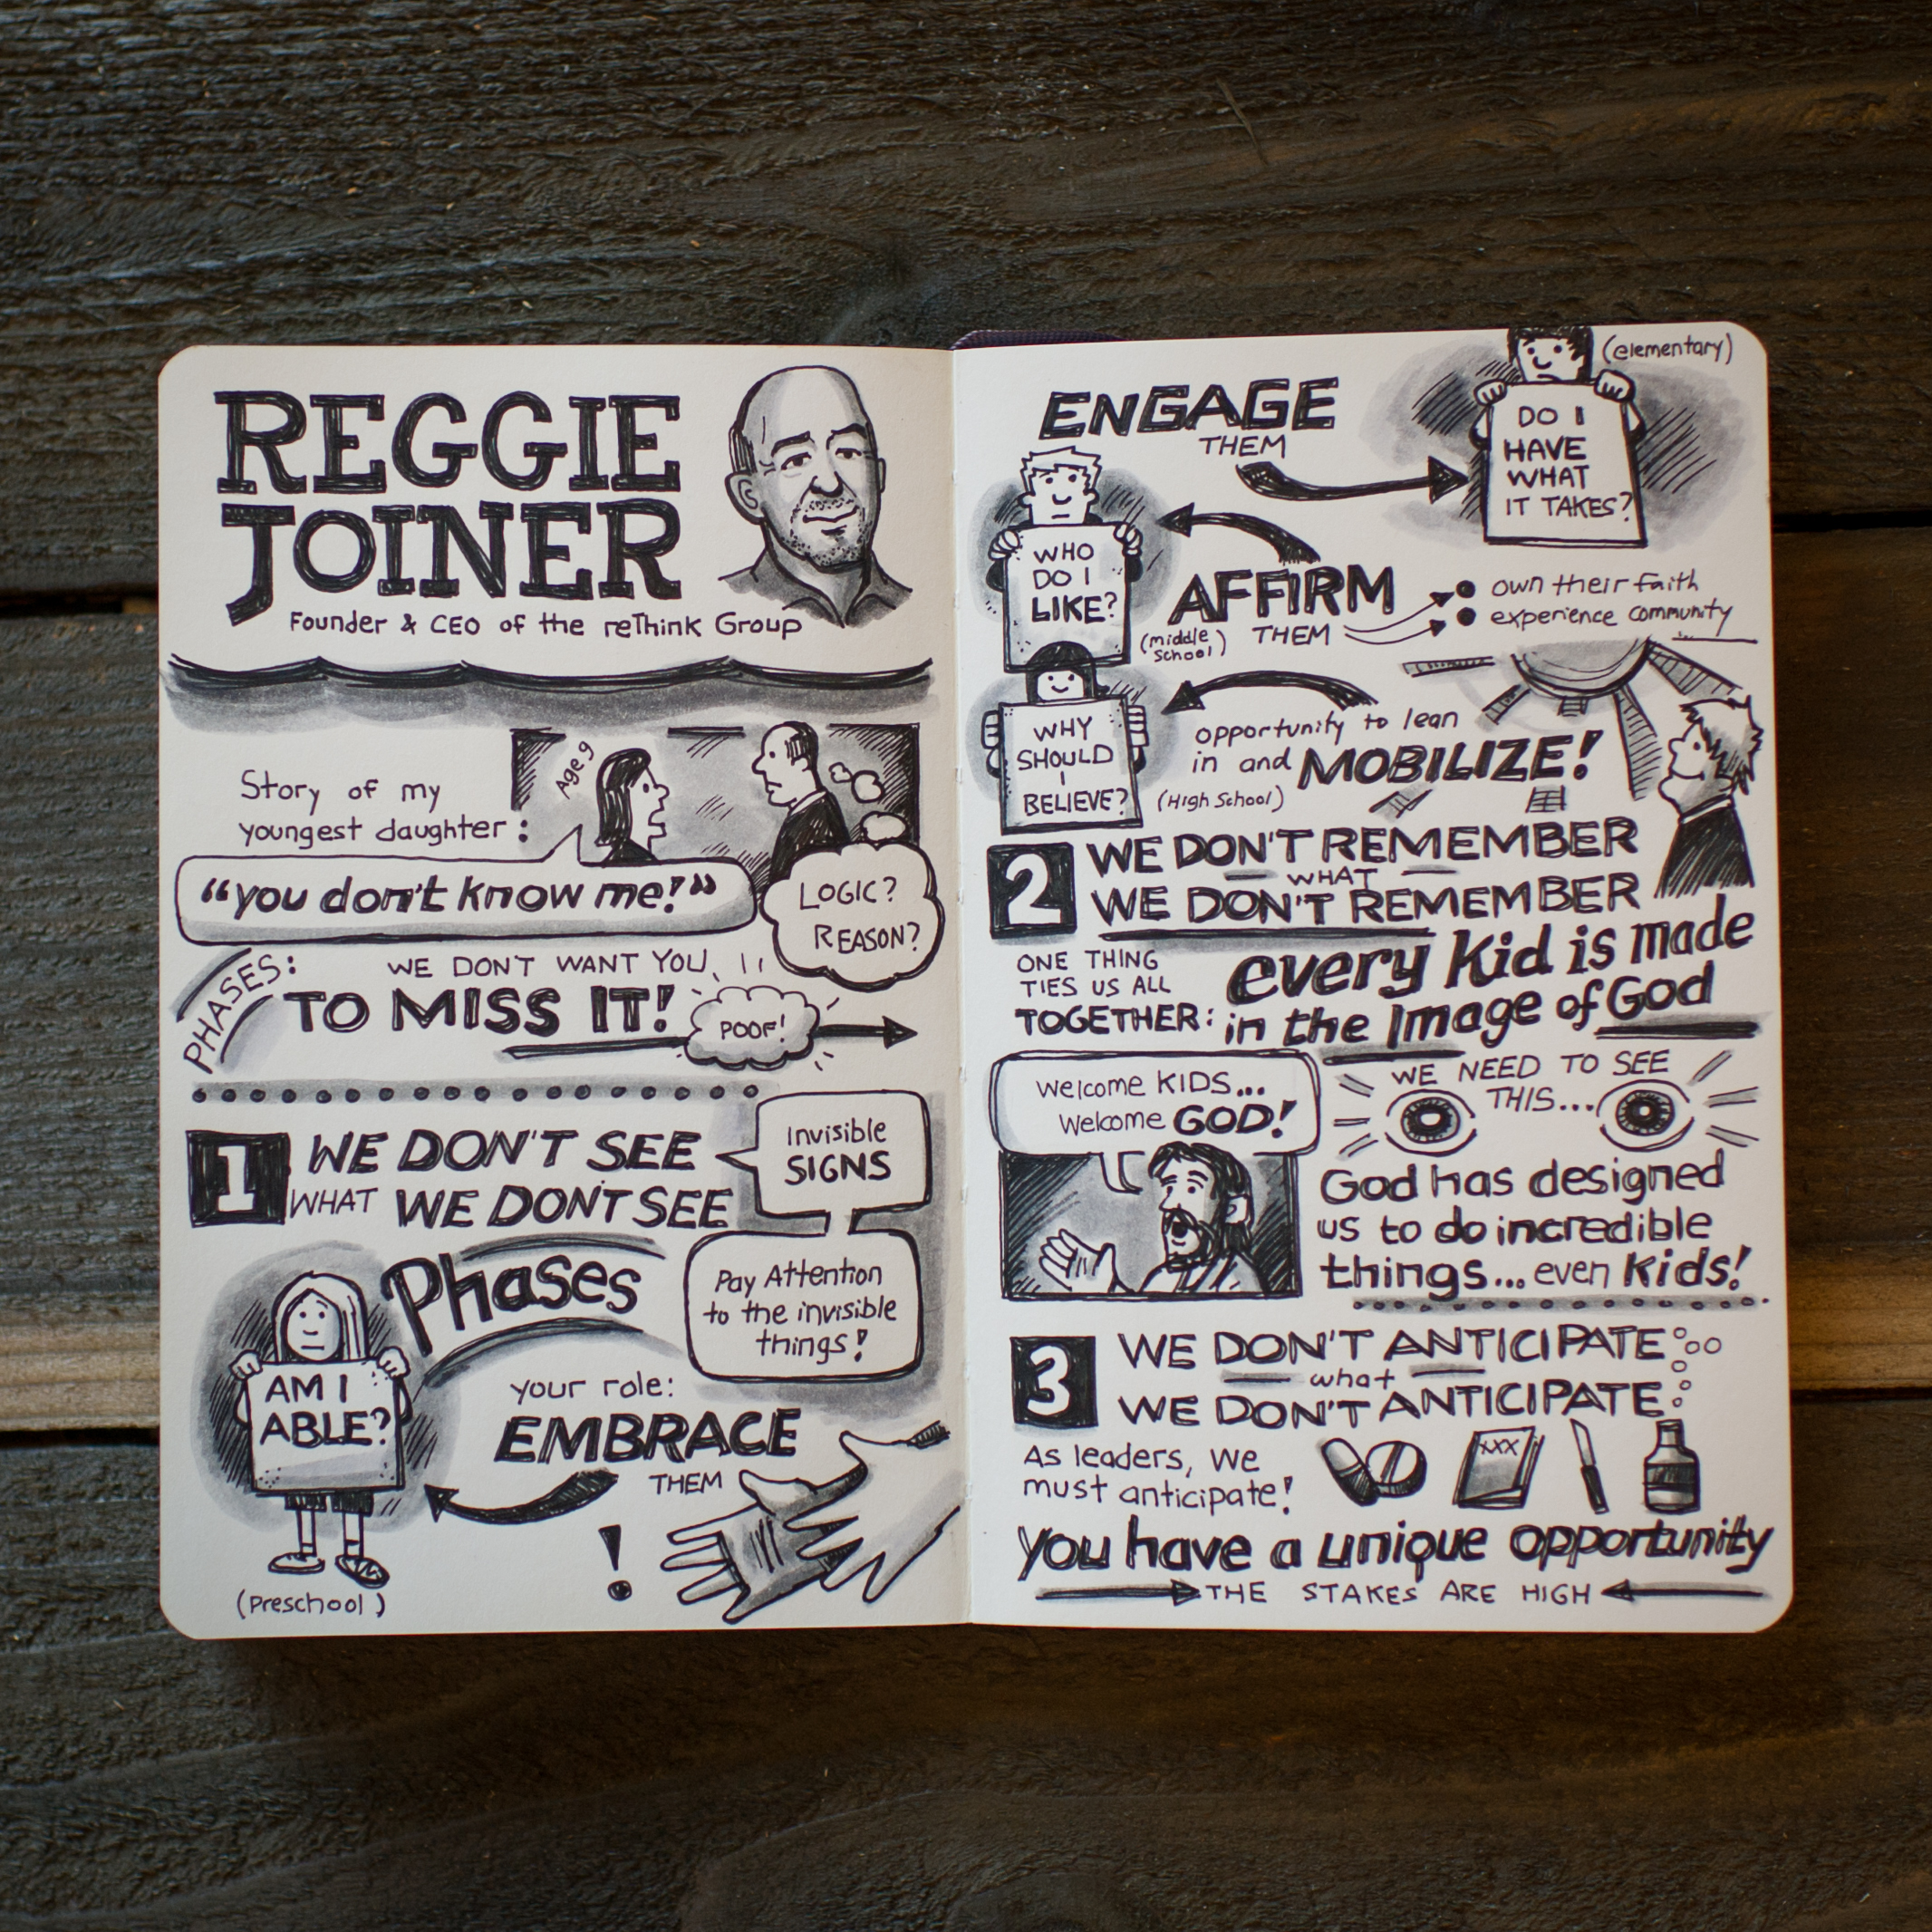 REGGIE
JOINER
Founder & CEO of the reThink Group
Age 9
Story of my
youngest daughter:
"you don't know me!"
LOGIC?
REASON?
PHASES:
WE DON'T WANT YOU
TO MISS IT!
POOF!
1
WE DON'T SEE
WHAT WE DON'T SEE
Invisible
SIGNS
Pay Attention
to the invisible
things!
Phases
AM I
ABLE?
(Preschool)
your role:
EMBRACE
THEM
!
ENGAGE
THEM
(elementary)
DO I
HAVE
WHAT
IT TAKES?
WHO
DO I
LIKE?
(middle
school)
AFFIRM
THEM
• own their faith
• experience community
WHY
SHOULD
I
BELIEVE?
(High School)
opportunity to lean
in and MOBILIZE!
2
WE DON'T REMEMBER
WHAT
WE DON'T REMEMBER
ONE THING
TIES US ALL
TOGETHER:
every Kid is made
in the Image of God
Welcome KIDS...
Welcome GOD!
WE NEED TO SEE
THIS...
God has designed
us to do incredible
things... even Kids!
3
WE DON'T ANTICIPATE
what
WE DON'T ANTICIPATE
As leaders, we
must anticipate!
XXX
you have a unique opportunity
THE STAKES ARE HIGH